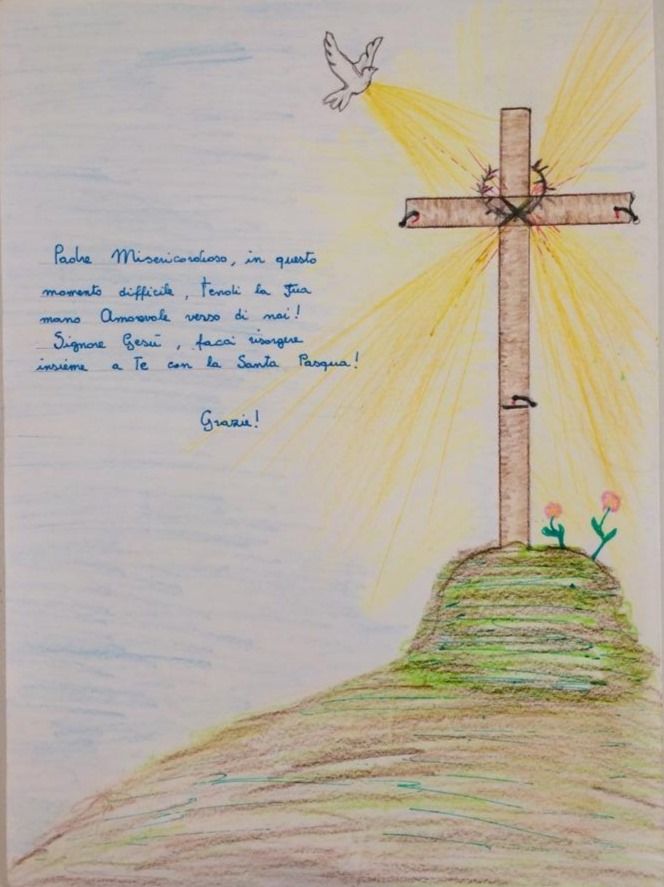 Padre Misericordioso, in questo
momento difficile, tendi la Tua
mano Amorevole verso di noi!
Signore Gesù, facci risorgere
insieme a Te con la Santa Pasqua!
Grazie!